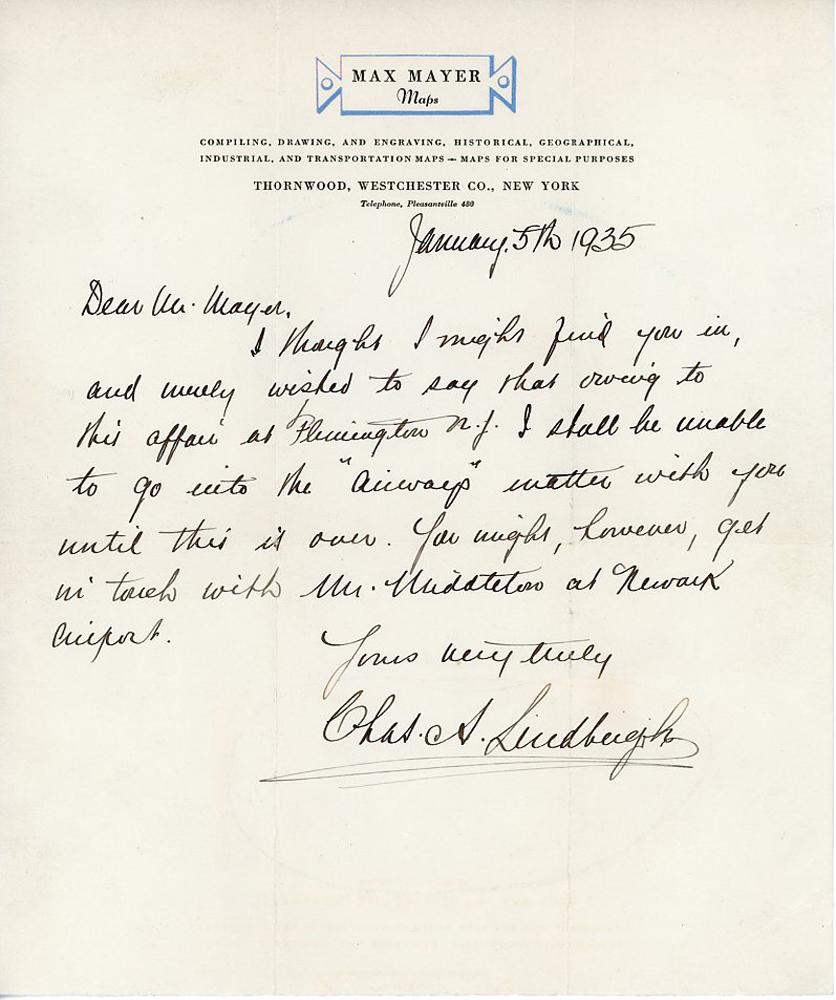 MAX MAYER
Maps
COMPILING, DRAWING, AND ENGRAVING, HISTORICAL, GEOGRAPHICAL,
INDUSTRIAL, AND TRANSPORTATION MAPS — MAPS FOR SPECIAL PURPOSES
THORNWOOD, WESTCHESTER CO., NEW YORK
Telephone, Pleasantville 480
January. 5th 1935
Dear Mr. Mayer.
I thought I might find you in,
and merely wished to say that owing to
this affair at Flemington N.J. I shall be unable
to go into the "airways" matter with you
until this is over. You might, however, get
in touch with Mr. Middleton at Newark
Airport.
Yours very truly
Chas. A. Lindbergh